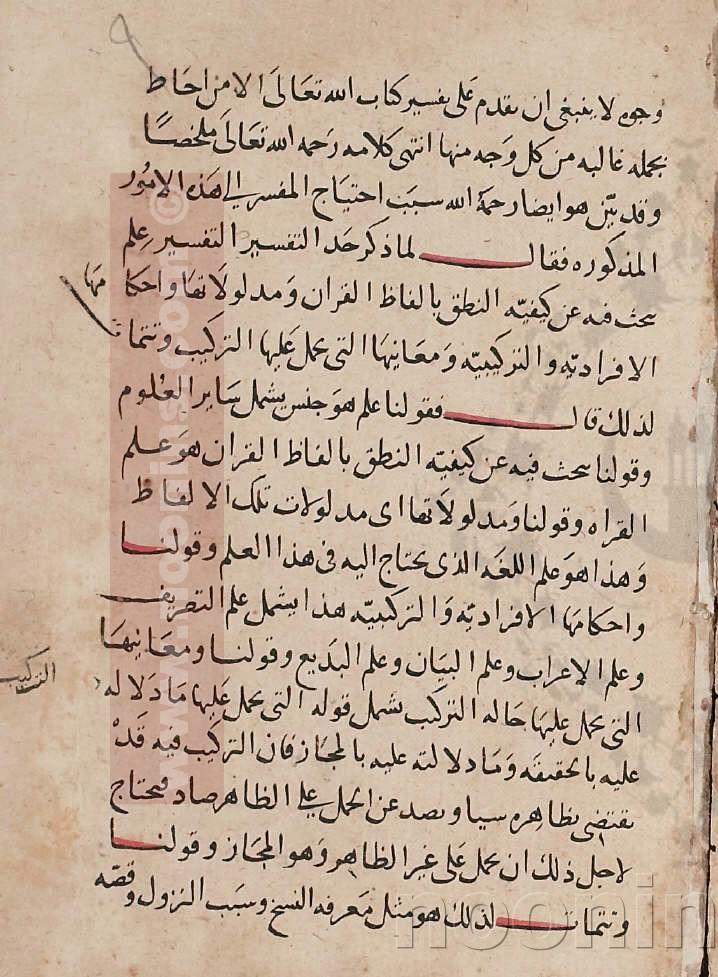 ٩
وجوه لا ينبغى ان يقدم على تفسير كتاب الله تعالى الا من احاط
بجمله غالبه من كل وجه منها انتهى كلامه رحمه الله تعالى ملخصا
وقد بين هو ايضا رحمه الله سبب احتياج المفسر الى هذه الامور
المذكوره فقال لما ذكر حد التفسير التفسير علم
يبحث فيه عن كيفيه النطق بالفاظ القران ومدلولاتها واحكامها
الافراديه والتركيبيه ومعانيها التى يحمل عليها التركيب وتتمات
لذلك قال فقولنا علم هو جنس يشمل ساير العلوم
وقولنا يبحث فيه عن كيفيه النطق بالفاظ القران هو علم
القراه وقولنا ومدلولاتها اى مدلولات تلك الالفاظ
وهذا هو علم اللغه الذى يحتاج اليه فى هذا العلم وقولنا
واحكامها الافراديه والتركيبيه هذا يشمل علم التصريف
وعلم الاعراب وعلم البيان وعلم البديع وقولنا ومعانيها
التى يحمل عليها حاله التركب شمل قوله التى يحمل عليها ما دلاله
التركيب
عليه بالحقيقه وما دلالته عليه بالمجاز فان التركيب فيه قد
يقتضى بظاهره سيا ويصد عن الحمل على الظاهر صاد فيحتاج
لاجل ذلك ان يحمل على غير الظاهر وهو المجاز وقولنا
وتتمات لذلك هو مثل معرفه النسخ وسبب النزول وقصه
www.noonins.com ©
noonin